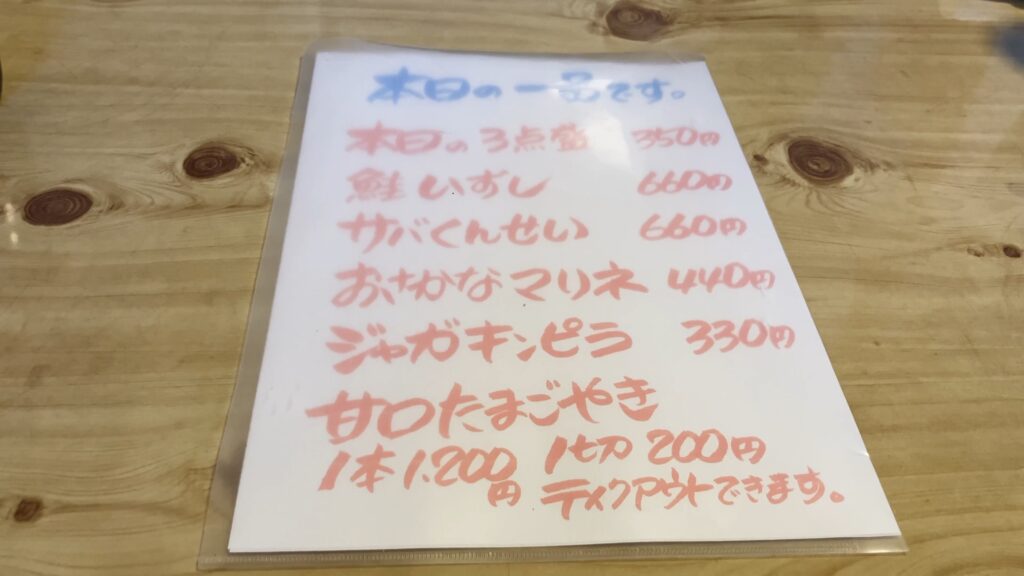 本日の一品です。
本日の3点盛 350円
鮭いずし 660円
サバくんせい 660円
おさかなマリネ 440円
ジャガキンピラ 330円
甘口たまごやき
1本1,200円 1切 200円
テイクアウトできます。